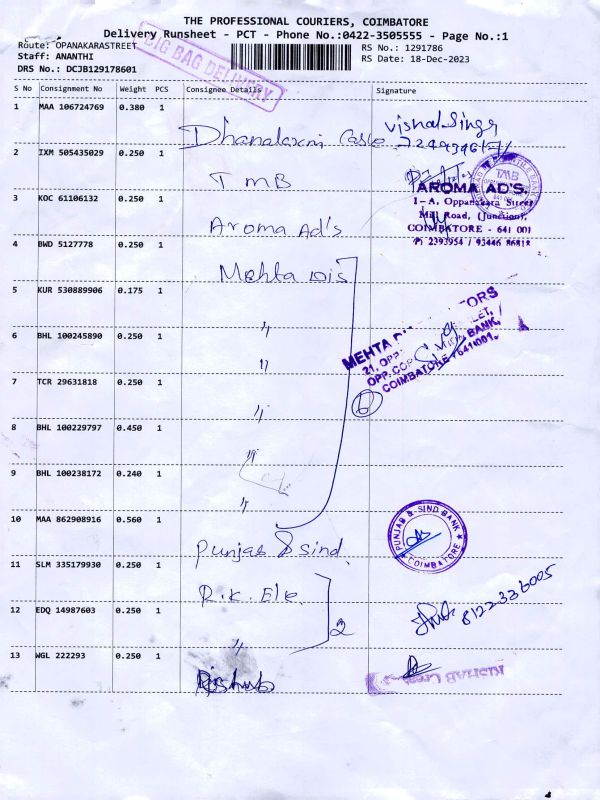 THE PROFESSIONAL COURIERS, COIMBATORE
Delivery Runsheet - PCT - Phone No.:0422-3505555 - Page No.:1
Route: OPANAKARASTREET
RS No.: 1291786
Staff: ANANTHI
RS Date: 18-Dec-2023
DRS No.: DCJB129178601
BIG BAG DELIVERY
S No Consignment No Weight PCS Consignee Details Signature
1 MAA 106724769 0.380 1 Dhanalaxmi
Vishal Singh
2 IXM 505435029 0.250 1 TMB
TMB
3 KOC 61106132 0.250 1 Aroma Ad's
AROMA AD'S.
1-A, Oppanakara Street
Mill Road, (Junction)
COIMBATORE - 641 001
P: 2393954 / 93446 86818
4 BWD 5127778 0.250 1 Mehta Dis
5 KUR 530889906 0.175 1 "
6 BHL 100245890 0.250 1 "
MEHTA
21, OPP.
OPP. BANK,
COIMBATORE - 641001.
7 TCR 29631818 0.250 1 "
6
8 BHL 100229797 0.450 1 "
9 BHL 100238172 0.240 1 "
10 MAA 862908916 0.560 1 Punjab & Sind
PUNJAB & SIND BANK
COIMBATORE
11 SLM 335179930 0.250 1 R.K. Ele
12 EDQ 14987603 0.250 1 "
2
8122336005
13 WGL 222293 0.250 1 Rishab
RISHAB